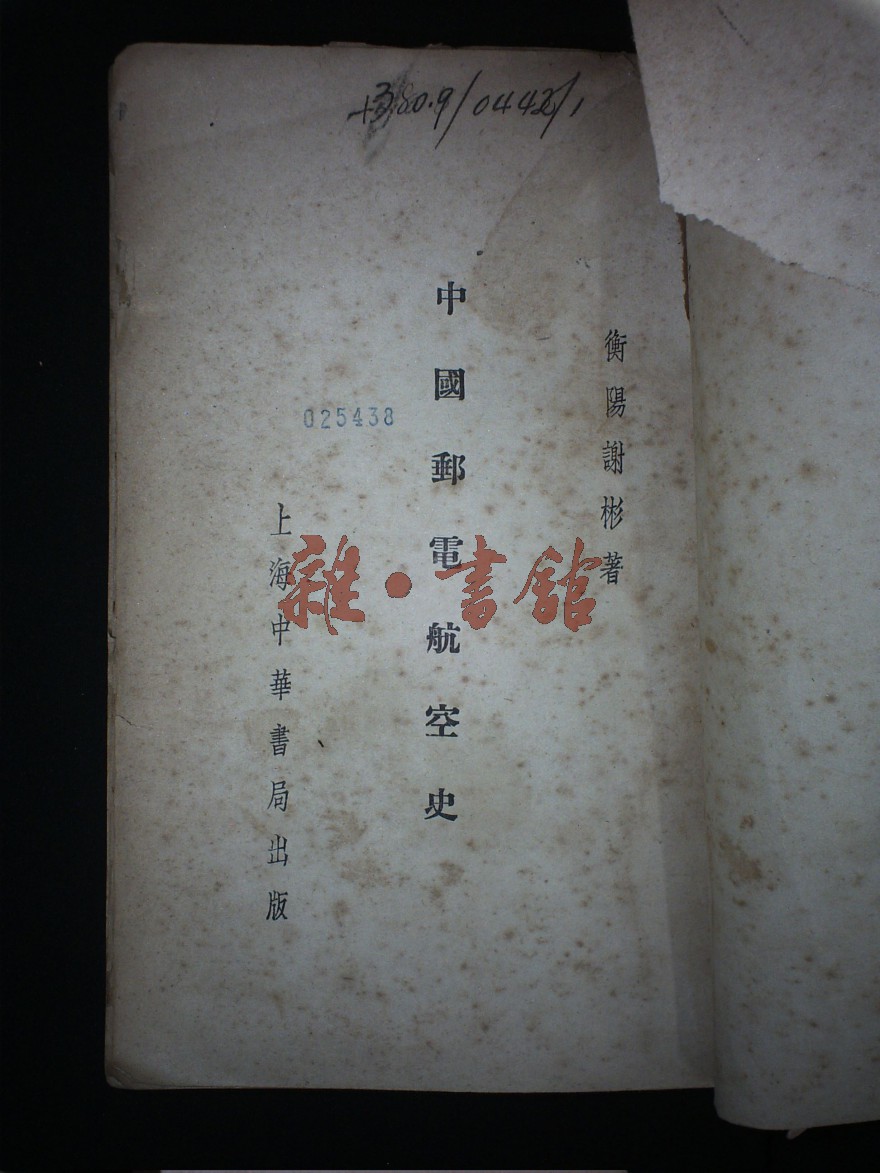 +380.9/0442/1
衡陽謝彬著
中國郵電航空史
025438
上海中華書局出版
雜·書館